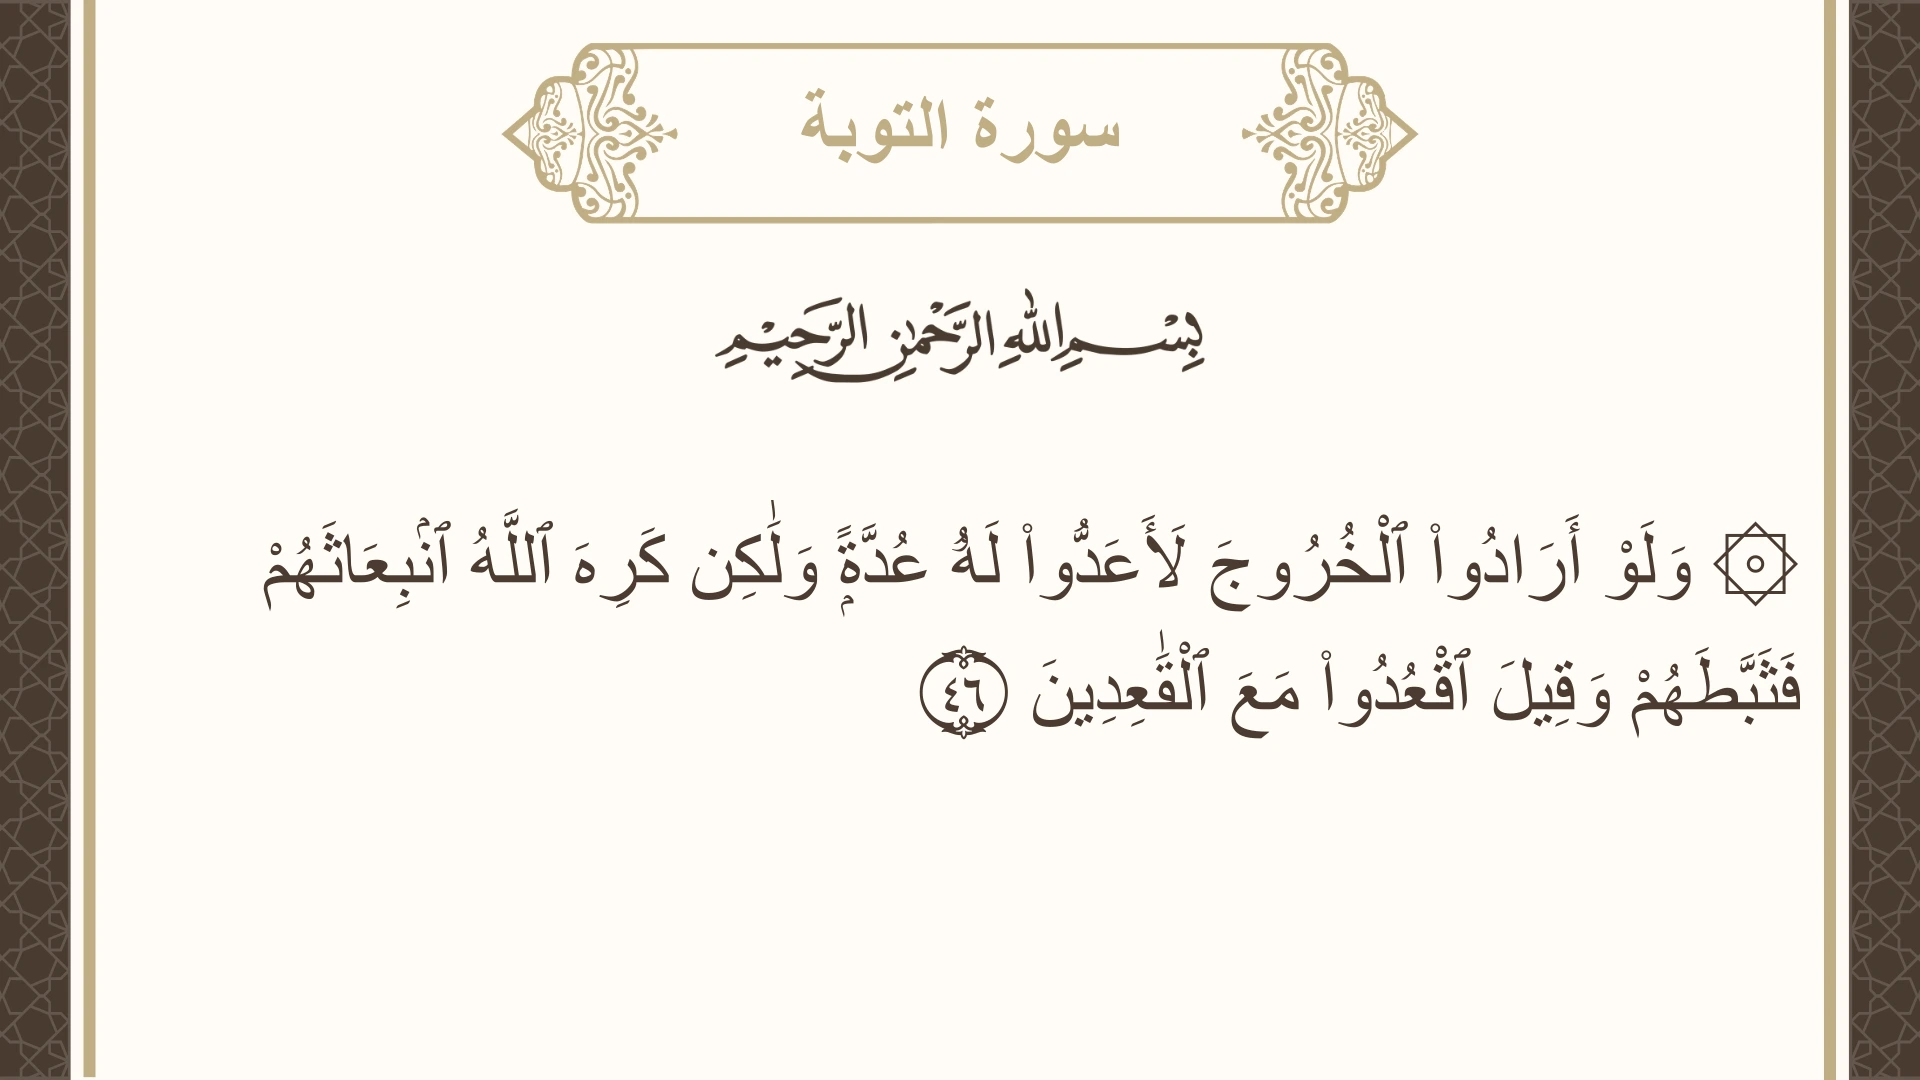 سورة التوبة
بِسْمِ اللهِ الرَّحْمٰنِ الرَّحِيْمِ
۞ وَلَوْ أَرَادُوا۟ ٱلْخُرُوجَ لَأَعَدُّوا۟ لَهُۥ عُدَّةًۭ وَلَٰكِن كَرِهَ ٱللَّهُ ٱنۢبِعَاثَهُمْ
فَثَبَّطَهُمْ وَقِيلَ ٱقْعُدُوا۟ مَعَ ٱلْقَٰعِدِينَ ٤٦